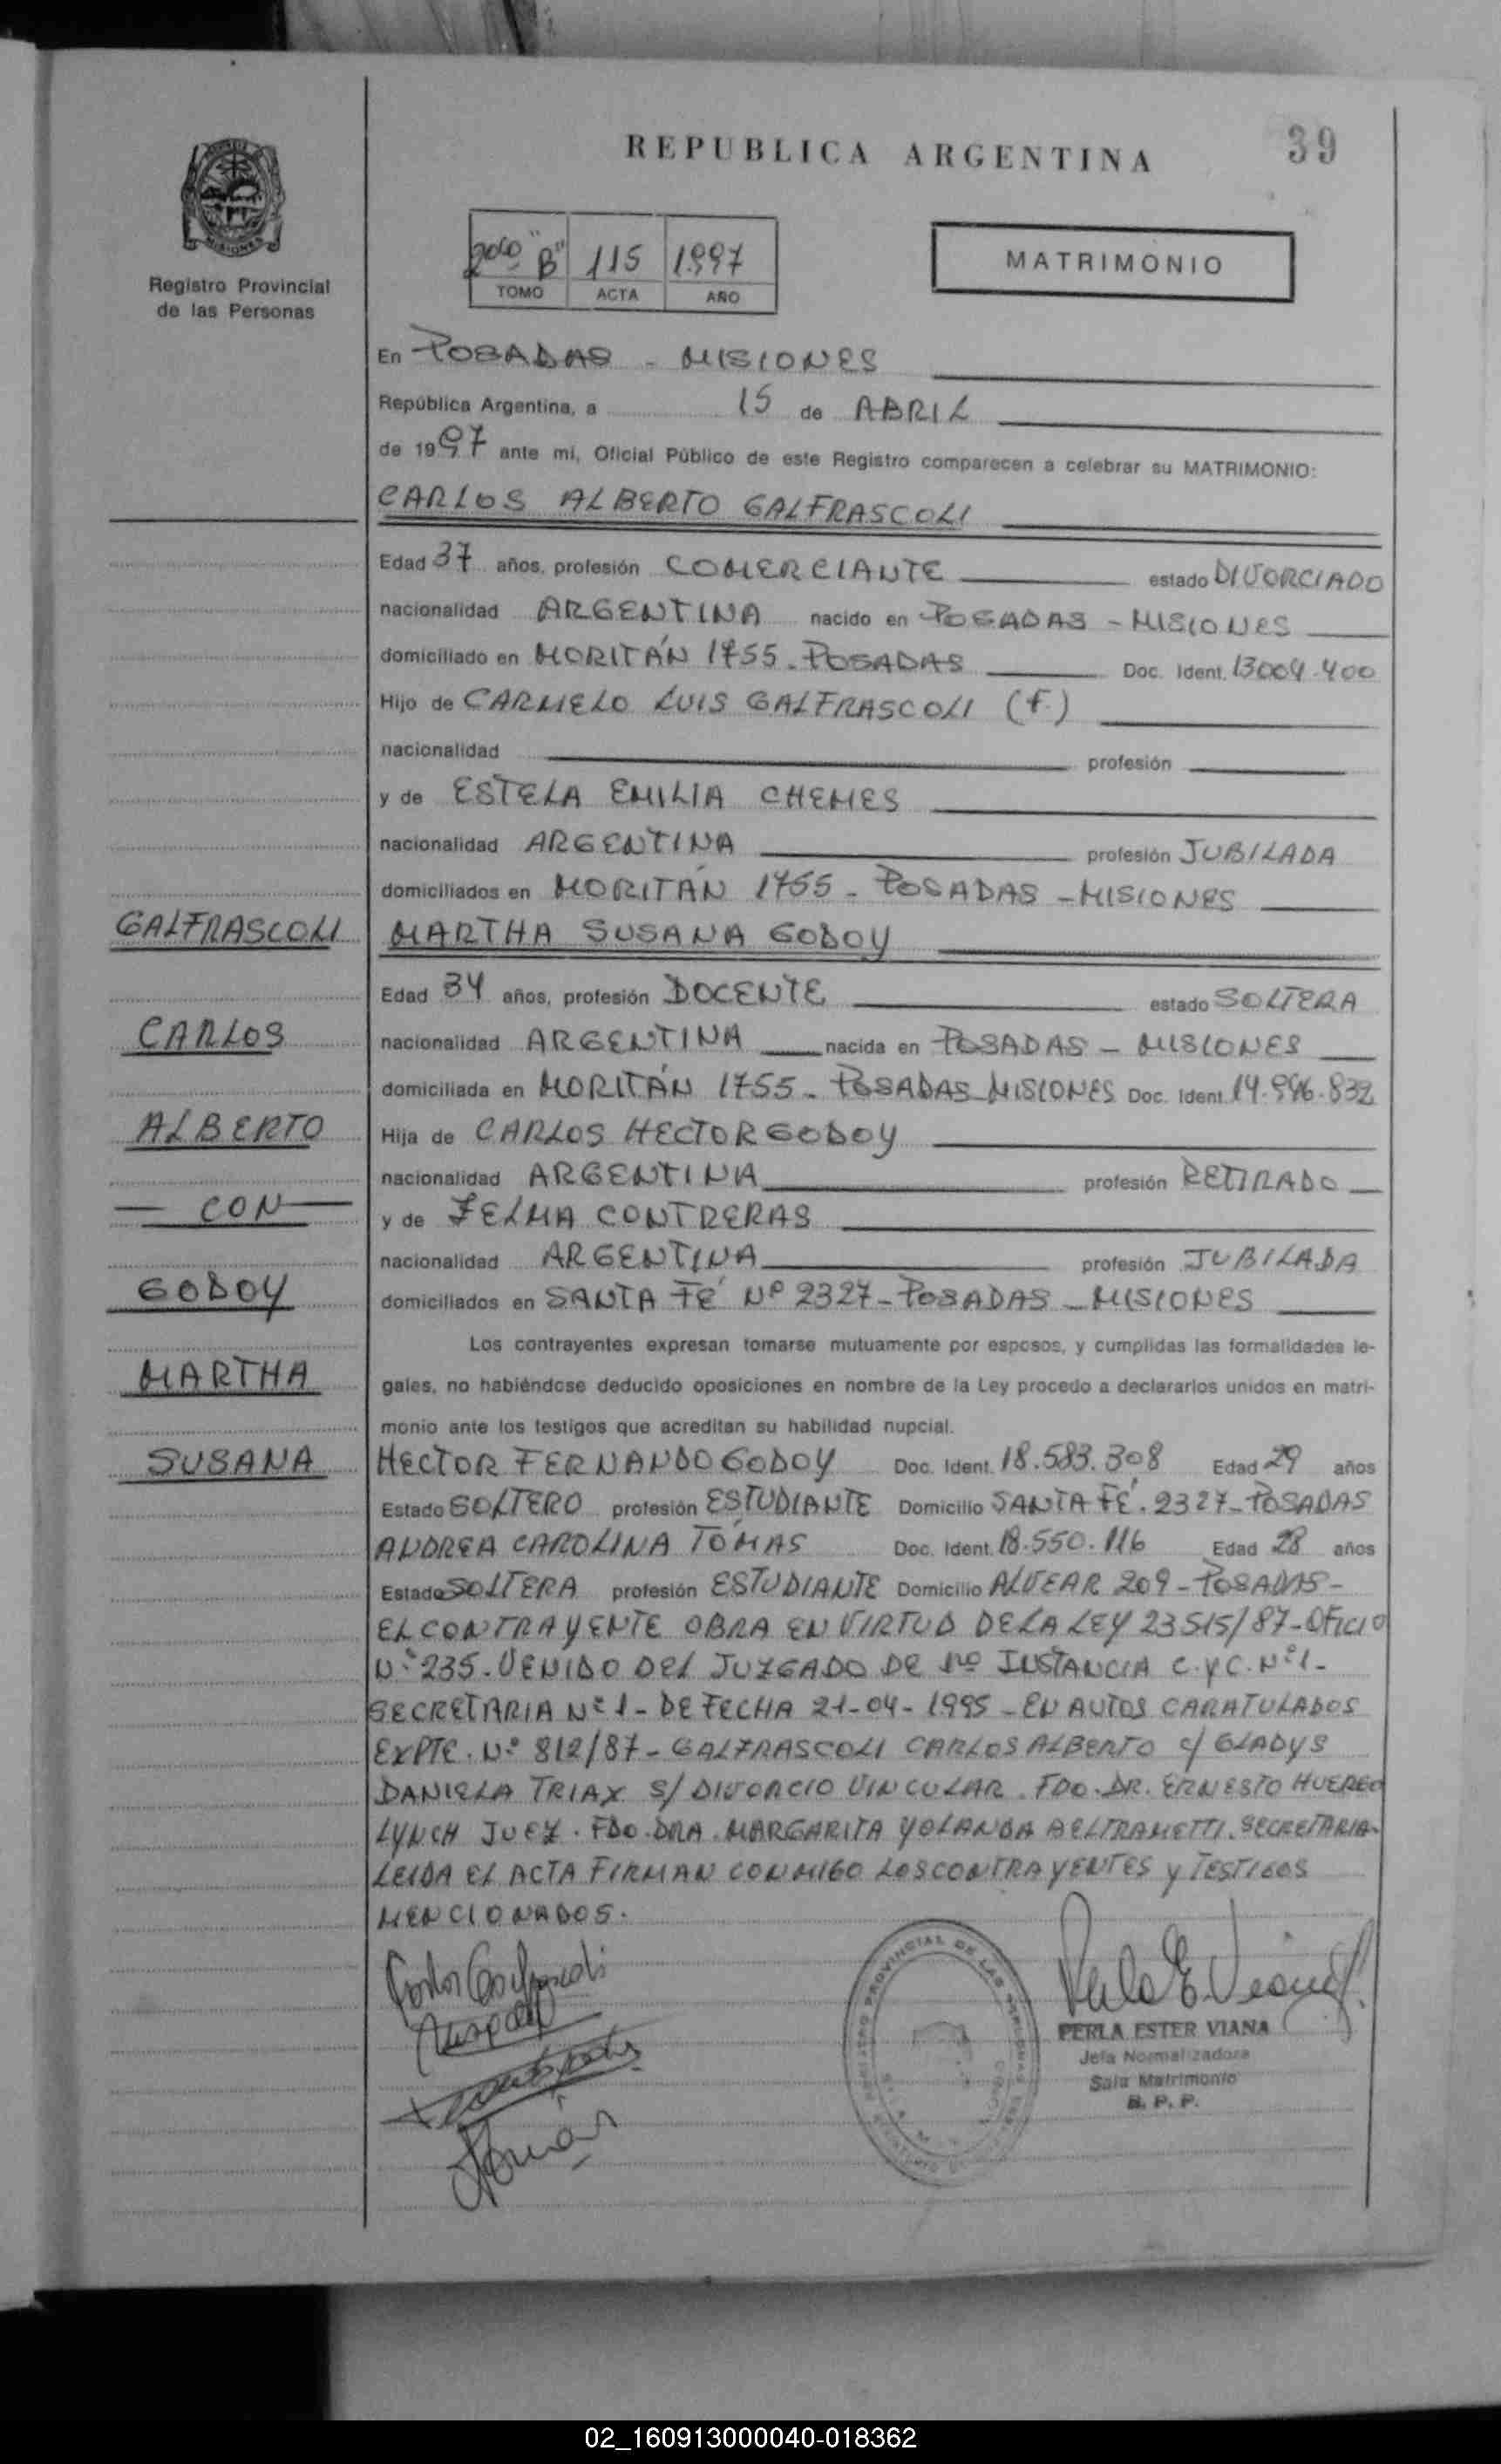 REPUBLICA ARGENTINA
39
MISIONES
Registro Provincial
de las Personas
"B" 115 1997
TOMO ACTA AÑO
MATRIMONIO
En POSADAS - MISIONES
República Argentina, a 15 de ABRIL
de 1997 ante mi, Oficial Público de este Registro comparecen a celebrar su MATRIMONIO:
CARLOS ALBERTO GALFRASCOLI
Edad 37 años, profesión COMERCIANTE estado DIVORCIADO
nacionalidad ARGENTINA nacido en POSADAS - MISIONES
domiciliado en MORITÁN 1755 - POSADAS Doc. Ident. 13004.400
Hijo de CARMELO LUIS GALFRASCOLI (f.)
nacionalidad profesión
y de ESTELA EMILIA CHEMES
nacionalidad ARGENTINA profesión JUBILADA
domiciliados en MORITÁN 1755 - POSADAS - MISIONES
GALFRASCOLI
MARTHA SUSANA GODOY
Edad 34 años, profesión DOCENTE estado SOLTERA
CARLOS
nacionalidad ARGENTINA nacida en POSADAS - MISIONES
domiciliada en MORITÁN 1755 - POSADAS - MISIONES Doc. Ident. 14.946.832
ALBERTO
Hija de CARLOS HECTOR GODOY
nacionalidad ARGENTINA profesión RETIRADO
- CON -
y de ZELMA CONTRERAS
nacionalidad ARGENTINA profesión JUBILADA
GODOY
domiciliados en SANTA FÉ Nº 2327 - POSADAS - MISIONES
Los contrayentes expresan tomarse mutuamente por esposos, y cumplidas las formalidades le-
MARTHA
gales, no habiéndose deducido oposiciones en nombre de la Ley procedo a declararlos unidos en matri-
monio ante los testigos que acreditan su habilidad nupcial.
SUSANA
HECTOR FERNANDO GODOY Doc. Ident. 18.583.308 Edad 29 años
Estado SOLTERO profesión ESTUDIANTE Domicilio SANTA FÉ. 2327 - POSADAS
ANDREA CAROLINA TOMAS Doc. Ident. 18.550.116 Edad 28 años
Estado SOLTERA profesión ESTUDIANTE Domicilio ALVEAR 209 - POSADAS -
EL CONTRAYENTE OBRA EN VIRTUD DE LA LEY 23515/87 - OFICIO
Nº 235. VENIDO DEL JUZGADO DE 1ra INSTANCIA C. y C. Nº 1 -
SECRETARIA Nº 1 - DE FECHA 21-04-1995 - EN AUTOS CARATULADOS
EXPTE. Nº 812/87 - GALFRASCOLI CARLOS ALBERTO c/ GLADYS
DANIELA TRIAX S/ DIVORCIO VINCULAR. FDO. DR. ERNESTO HUERGO
LYNCH JUEZ. FDO. DRA. MARGARITA YOLANDA BELTRAMETTI. SECRETARIA.
LEIDA EL ACTA FIRMAN CONMIGO LOS CONTRAYENTES y TESTIGOS
MENCIONADOS.
Carlos Galfrascoli
Tomás
PERLA ESTER VIANA
Jefa Normalizadora
Sala Matrimonio
R. P. P.
02_160913000040-018362